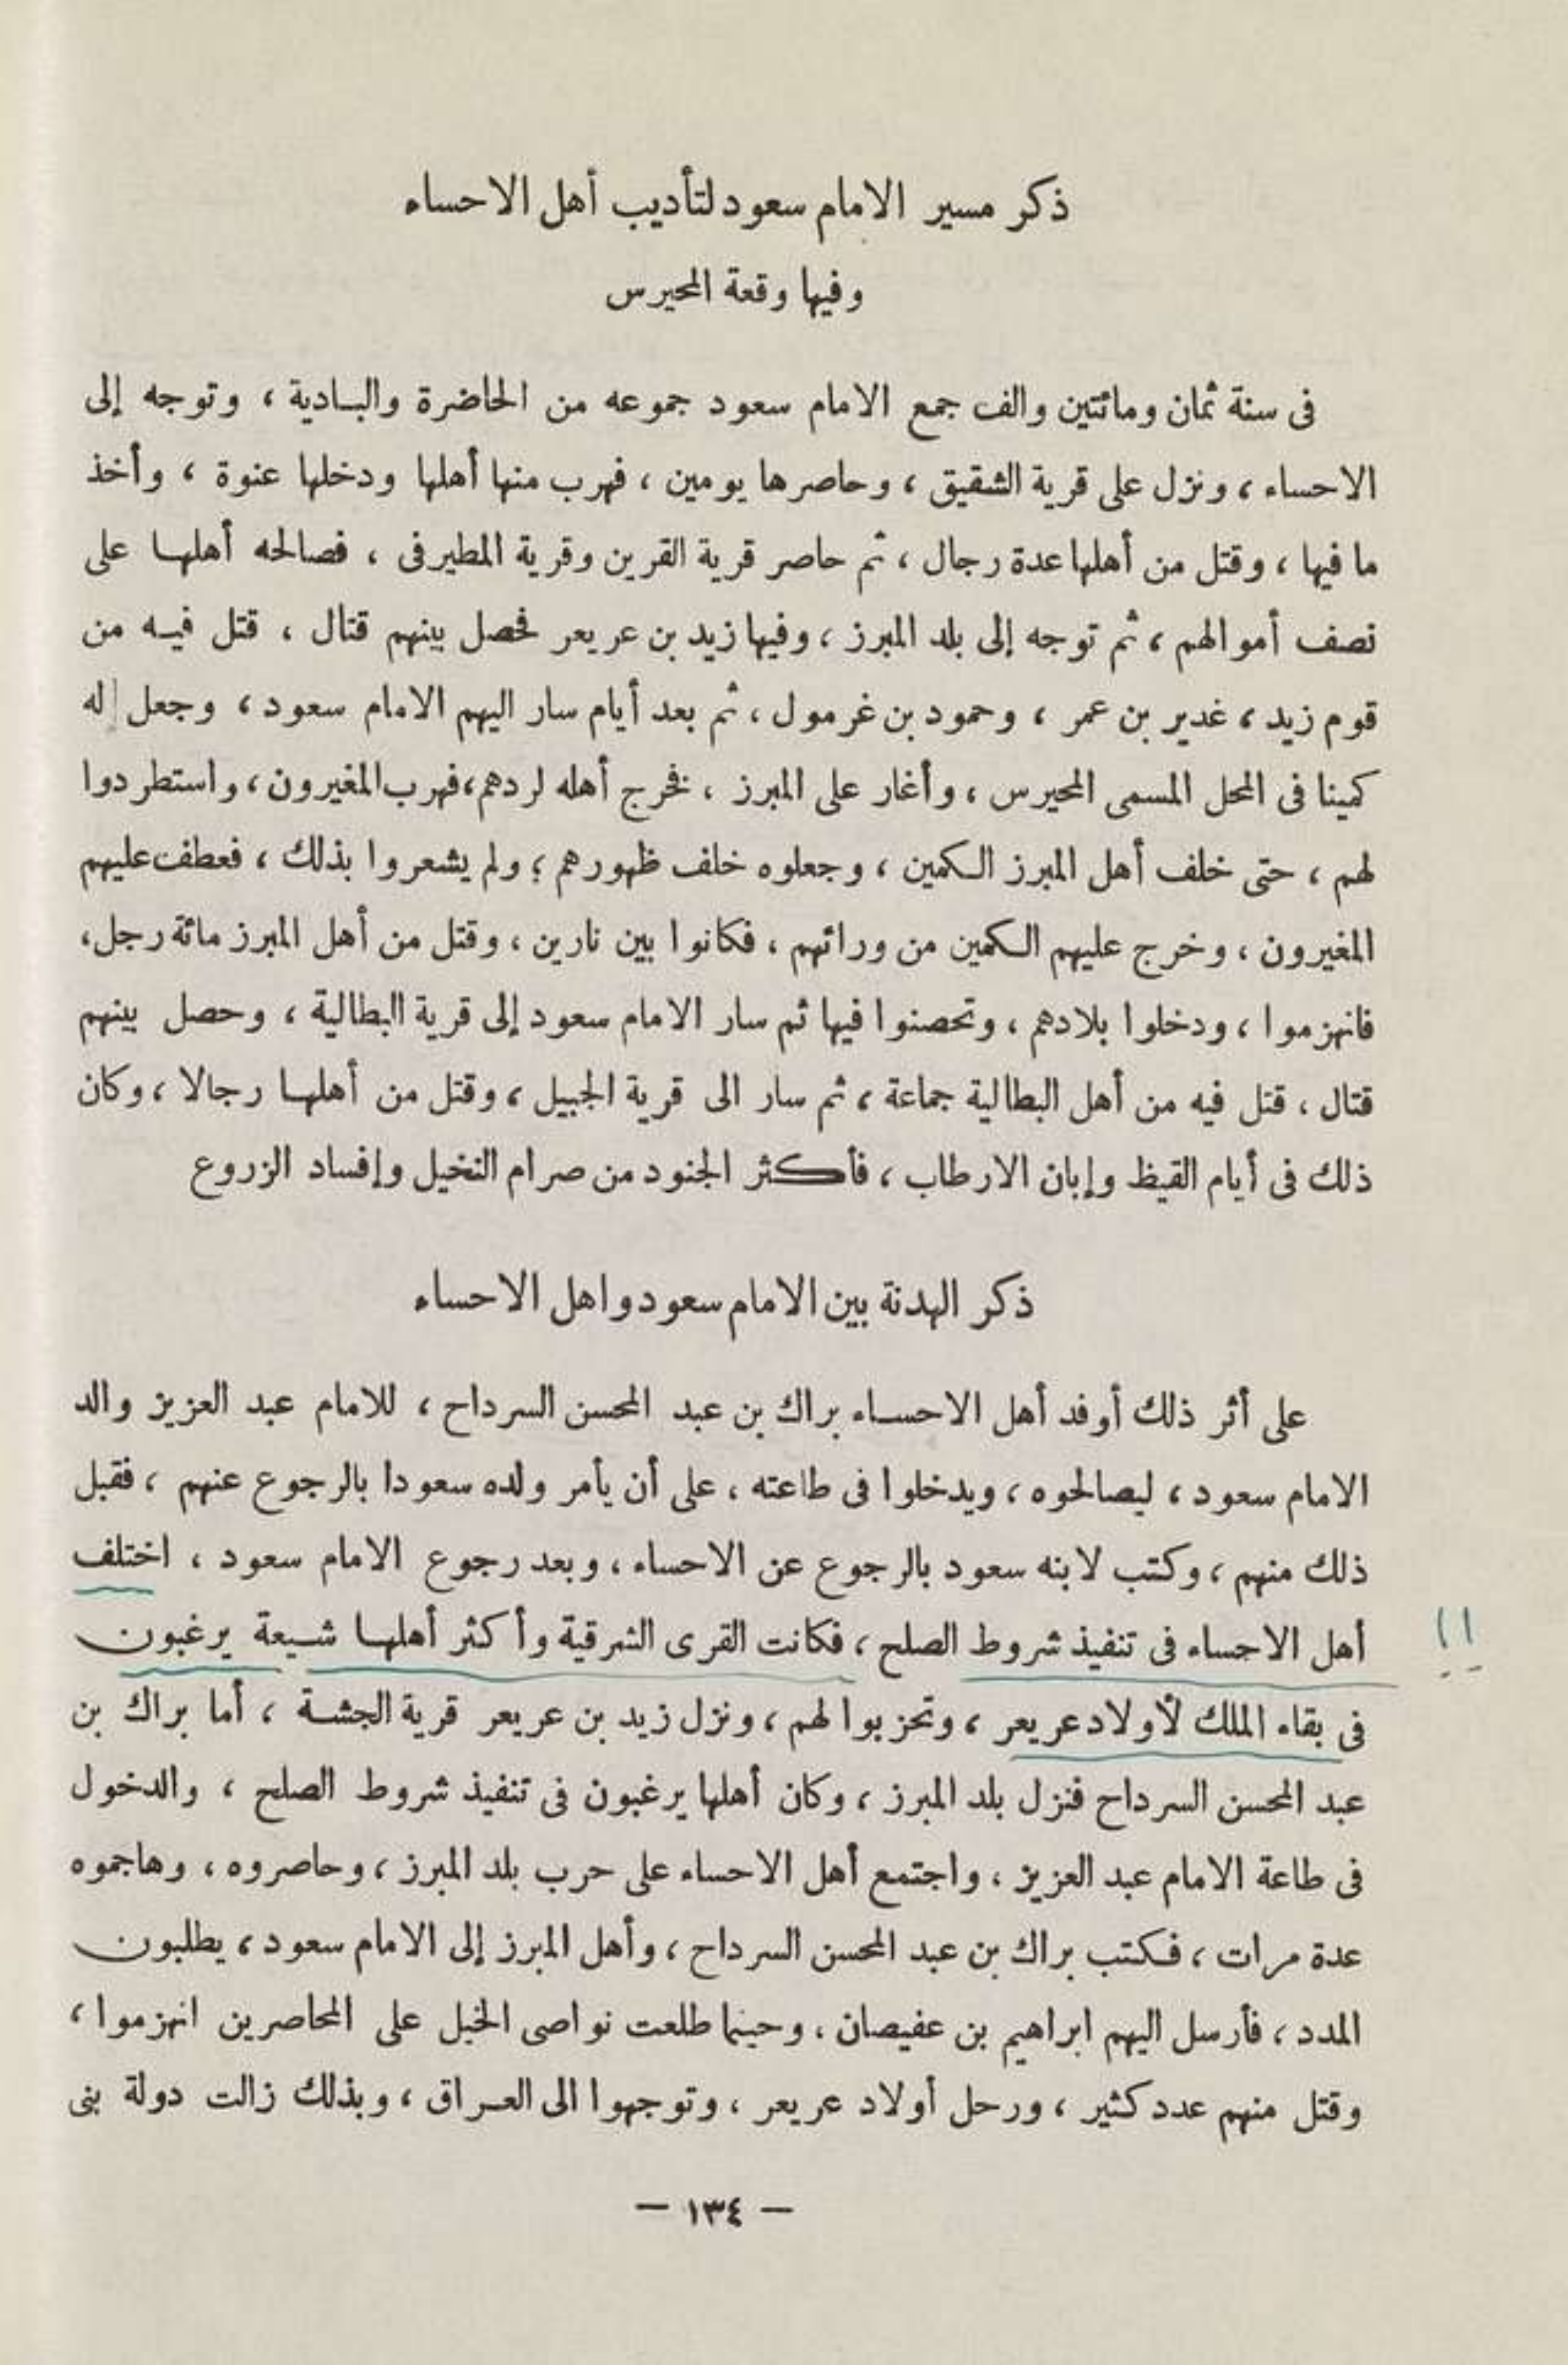 ذكر مسير الامام سعود لتأديب أهل الاحساء
وفيها وقعة المحيرس
فى سنة ثمان ومائتين والف جمع الامام سعود جموعه من الحاضرة والبادية ، وتوجه إلى
الاحساء ، ونزل على قرية الشقيق ، وحاصرها يومين ، فهرب منها أهلها ودخلها عنوة ، وأخذ
ما فيها ، وقتل من أهلها عدة رجال ، ثم حاصر قرية القرين وقرية المطيرفى ، فصالحه أهلها على
نصف أموالهم ، ثم توجه إلى بلد المبرز ، وفيها زيد بن عريعر فحصل بينهم قتال ، قتل فيه من
قوم زيد ، غدير بن عمر ، وحمود بن غرمول ، ثم بعد أيام سار اليهم الامام سعود ، وجعل له
كمينا فى المحل المسمى المحيرس ، وأغار على المبرز ، فخرج أهله لردهم ، فهرب المغيرون ، واستطردوا
لهم ، حتى خلف أهل المبرز الكمين ، وجعلوه خلف ظهورهم ؛ ولم يشعروا بذلك ، فعطف عليهم
المغيرون ، وخرج عليهم الكمين من ورائهم ، فكانوا بين نارين ، وقتل من أهل المبرز مائة رجل ،
فانهزموا ، ودخلوا بلادهم ، وتحصنوا فيها ثم سار الامام سعود إلى قرية البطالية ، وحصل بينهم
قتال ، قتل فيه من أهل البطالية جماعة ، ثم سار الى قرية الجبيل ، وقتل من أهلها رجالا ، وكان
ذلك فى أيام القيظ وإبان الارطاب ، فأكثر الجنود من صرام النخيل وإفساد الزروع
ذكر الهدنة بين الامام سعود واهل الاحساء
على أثر ذلك أوفد أهل الاحساء براك بن عبد المحسن السرداح ، للامام عبد العزيز والد
الامام سعود ، ليصالحوه ، ويدخلوا فى طاعته ، على أن يأمر ولده سعودا بالرجوع عنهم ، فقبل
ذلك منهم ، وكتب لابنه سعود بالرجوع عن الاحساء ، وبعد رجوع الامام سعود ، اختلف
أهل الاحساء فى تنفيذ شروط الصلح ، فكانت القرى الشرقية وأكثر أهلها شيعة يرغبون !!
فى بقاء الملك لأولاد عريعر ، وتحزبوا لهم ، ونزل زيد بن عريعر قرية الجشة ، أما براك بن
عبد المحسن السرداح فنزل بلد المبرز ، وكان أهلها يرغبون فى تنفيذ شروط الصلح ، والدخول
فى طاعة الامام عبد العزيز ، واجتمع أهل الاحساء على حرب بلد المبرز ، وحاصروه ، وهاجموه
عدة مرات ، فكتب براك بن عبد المحسن السرداح ، وأهل المبرز إلى الامام سعود ، يطلبون
المدد ، فأرسل اليهم ابراهيم بن عفيصان ، وحينما طلعت نواصى الخيل على المحاصرين انهزموا ،
وقتل منهم عدد كثير ، ورحل أولاد عريعر ، وتوجهوا الى العراق ، وبذلك زالت دولة بنى
— ١٣٤ —